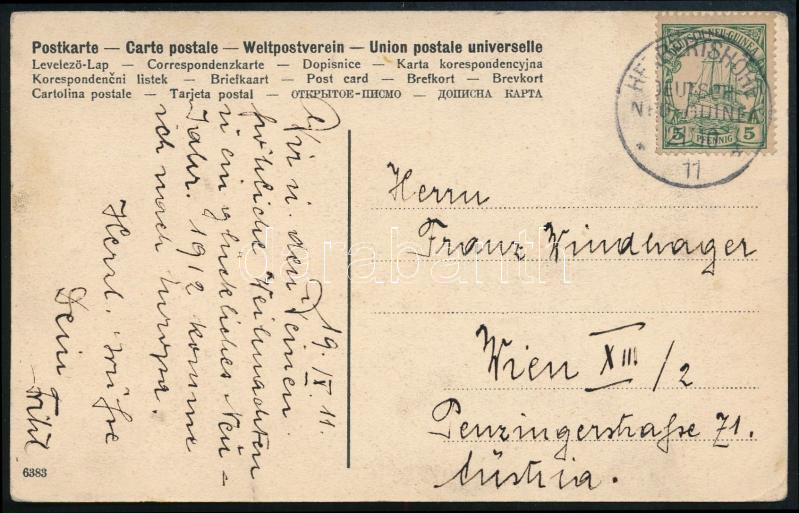 Postkarte — Carte postale — Weltpostverein — Union postale universelle
Levelező-Lap — Correspondenzkarte — Dopisnice — Karta korespondencyjna
Korespondenční listek — Briefkaart — Post card — Brefkort — Brevkort
Cartolina postale — Tarjeta postal — ОТКРЫТОЕ-ПИСМО — ДОПИСНА КАРТА
DEUTSCH-NEU-GUINEA
5 PFENNIG 5
HERBERTSHÖHE
DEUTSCH-
NEU-GUINEA
11
19. IX. 11.
Dir u. den Deinen
fröhliche Weihnachten
u ein glückliches Neu-
Jahr. 1912 komme
ich nach Europa.
Herzl. Grüße
Dein
Herrn
Franz Windhager
Wien XIII/2
Penzingerstraße 71.
Austria.
6383
darabanth